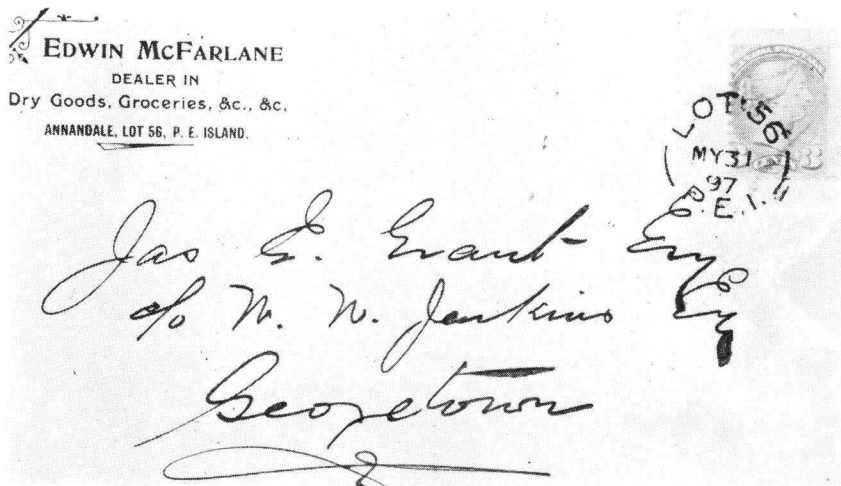 EDWIN MCFARLANE
DEALER IN
Dry Goods, Groceries, &c., &c,
ANNANDALE, LOT 56, P. E. ISLAND.
LOT 56
MY 31
97
P.E.I.
3
Jas E. Grant Esq
c/o W. W. Jenkins Esq
Georgetown